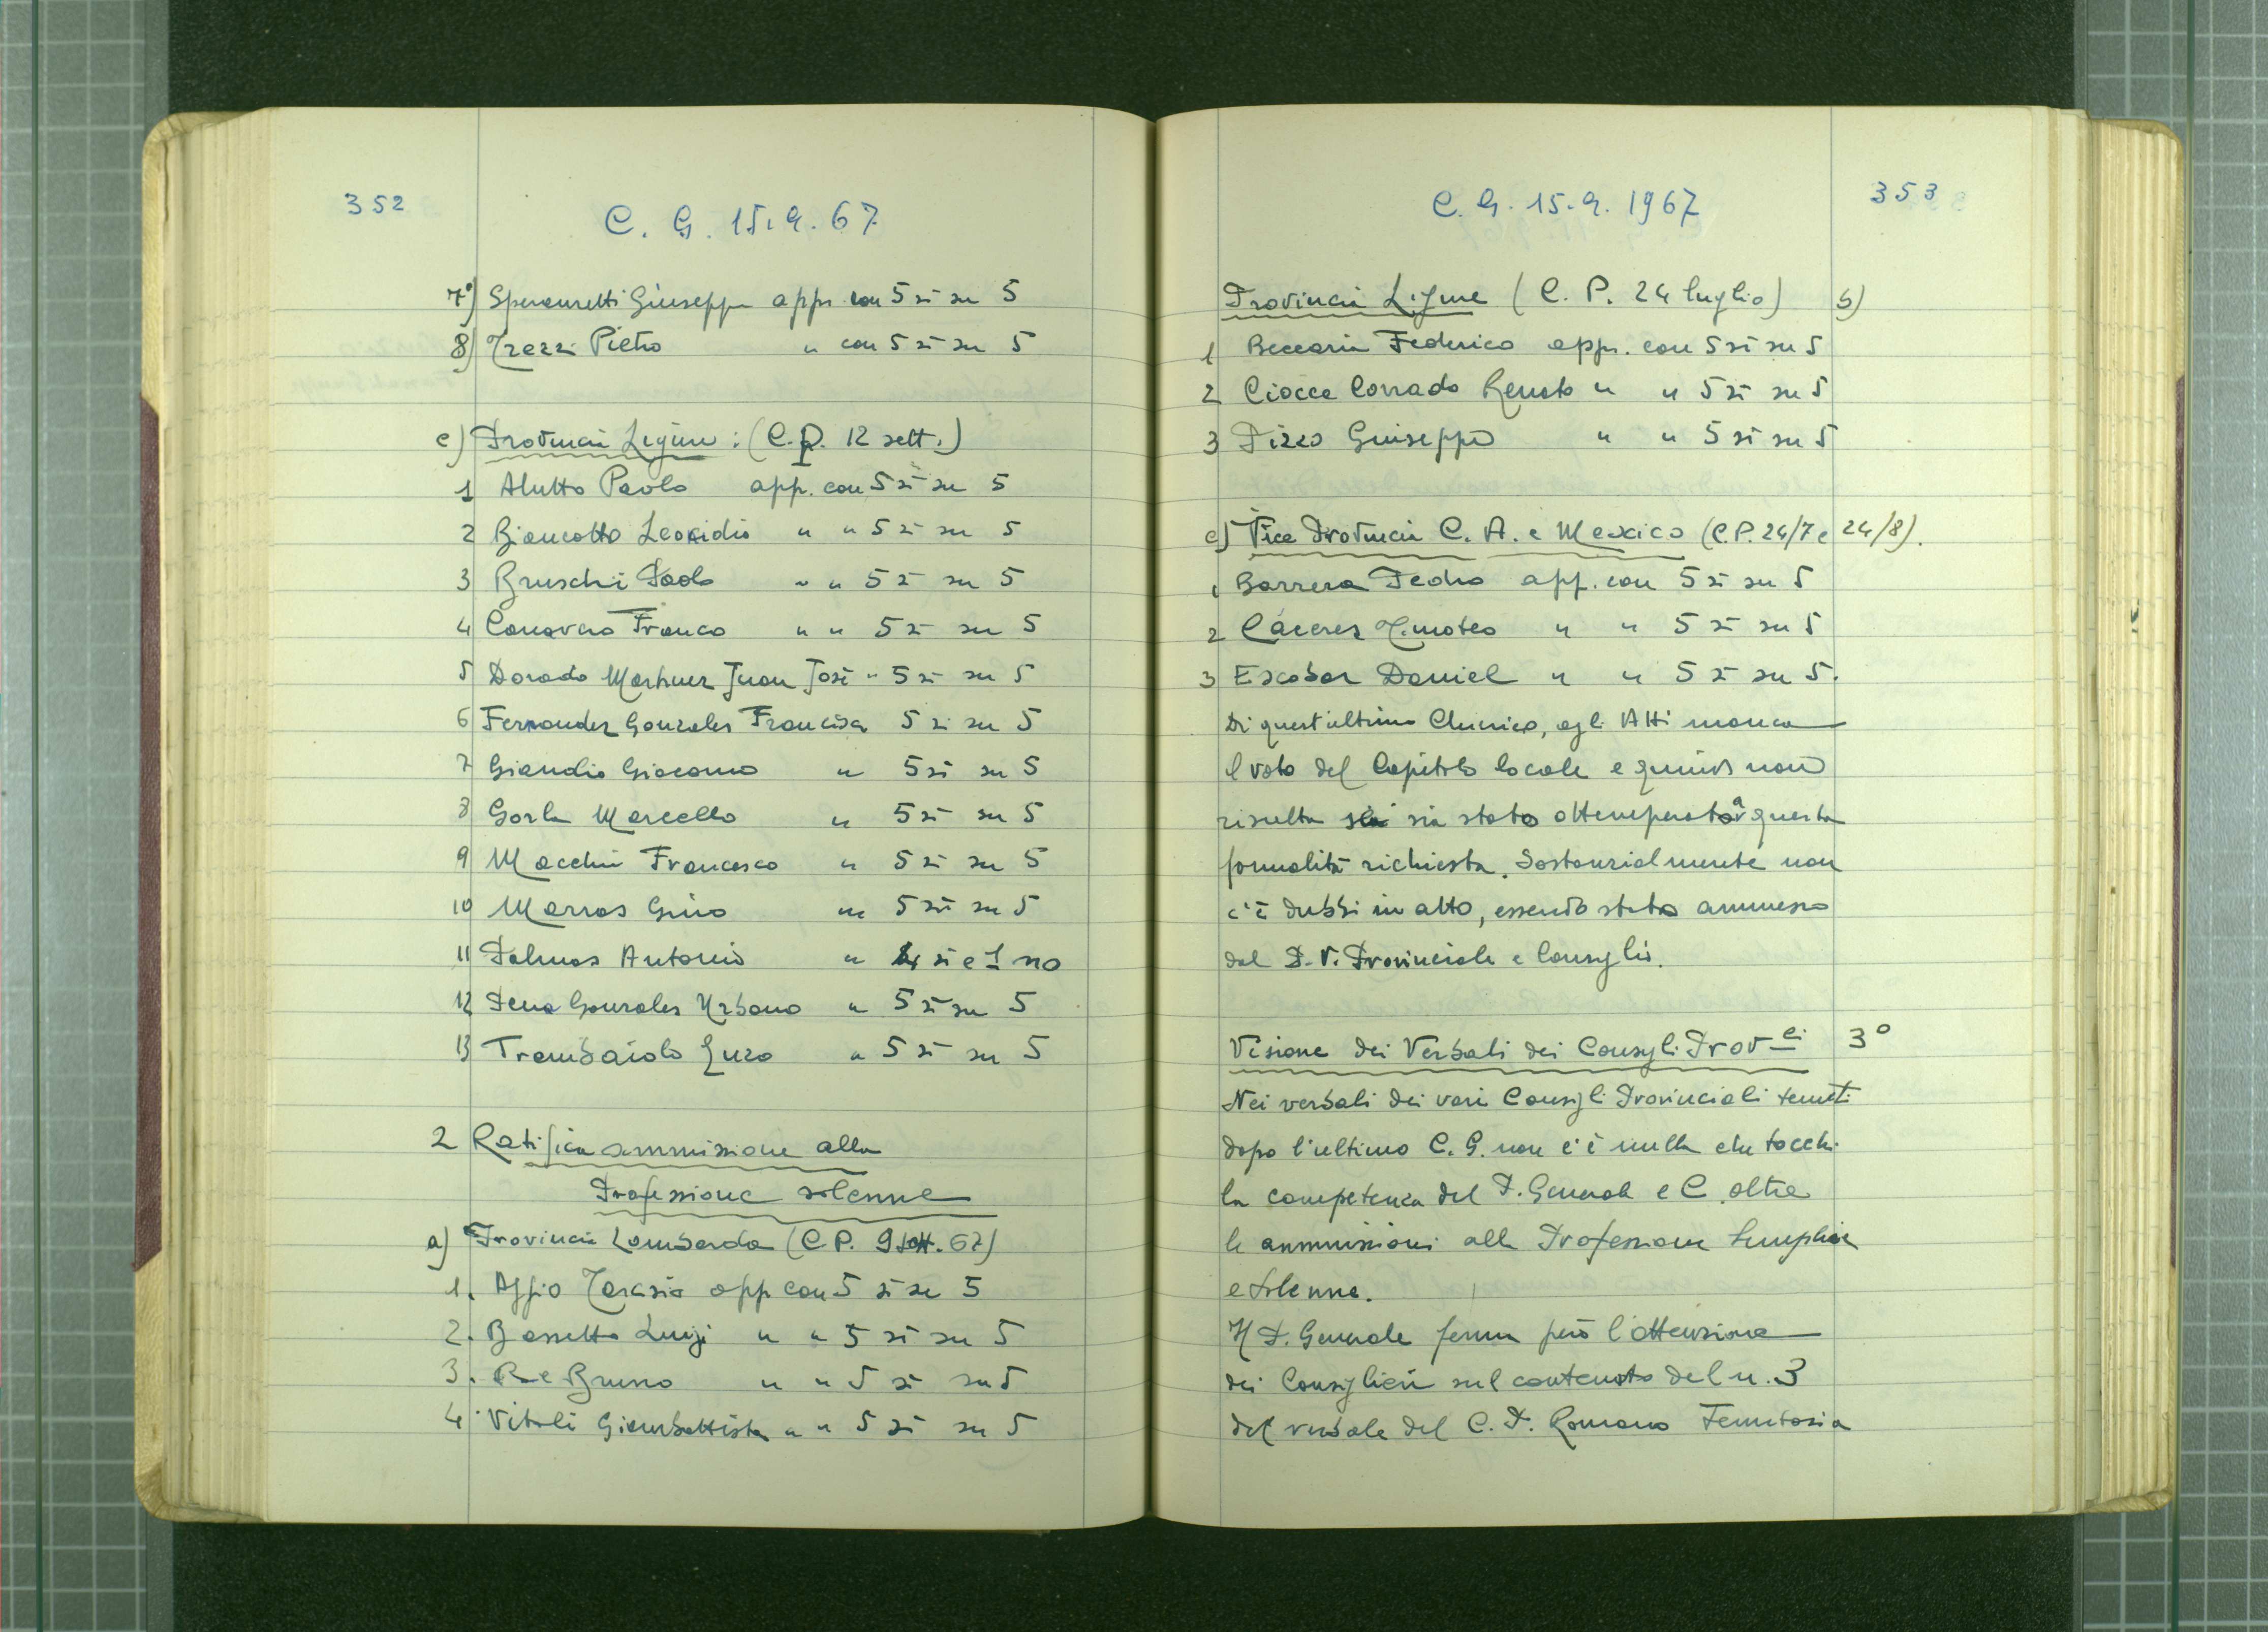 352
C. G. 15.9.67
7°) Speranzetti Giuseppe app. con 5 sì su 5
8) Trezzi Pietro " con 5 sì su 5
c) Provincia Ligure : (C.P. 12 sett.)
1 Alutto Paolo app. con 5 sì su 5
2 Biancotto Leonidio " " 5 sì su 5
3 Bruschi Paolo " " 5 sì su 5
4 Canavero Franco " " 5 sì su 5
5 Dorado Martinez Juan José " 5 sì su 5
6 Fernandez Gonzales Francisco 5 sì su 5
7 Giandio Giacomo " 5 sì su 5
8 Gorla Marcello " 5 sì su 5
9 Macchi Francesco " 5 sì su 5
10 Marras Gino " 5 sì su 5
11 Palmas Antonio " 4 sì e 1 no
12 Pena Gonzales Urbano " 5 sì su 5
13 Trombaiolo Enzo " 5 sì su 5
2 Ratifica ammissione alla
Professione solenne
a) Provincia Lombarda (C.P. 9 sett. 67)
1. Aggio Tarasio app con 5 sì su 5
2. Bassetto Luigi " " 5 sì su 5
3. Re Bruno " " 5 sì su 5
4. Vitali Giambattista " " 5 sì su 5
353
C. G. 15.9.1967
Provincia Ligure (C. P. 24 luglio) b)
1 Beccaria Federico app. con 5 sì su 5
2 Ciocca Corrado Renato " " 5 sì su 5
3 Pizzo Giuseppe " " 5 sì su 5
c) Vice Provincia C. A. e Mexico (C.P. 24/7 e 24/8).
1 Barrera Pedro app. con 5 sì su 5
2 Cáceres Timoteo " " 5 sì su 5
3 Escobar Daniel " " 5 sì su 5.
Di quest'ultimo Chierico, agli Atti manca
il voto del Capitolo locale e quindi non
risulta sia stato ottemperato a questa
formalità richiesta. Sostanzialmente non
c'è dubbi in atto, essendo stato ammesso
dal P. V. Provinciale e Consiglio.
Visione dei Verbali dei Consigli Prov.li 3°
Nei verbali dei vari Consigli Provinciali tenuti
dopo l'ultimo C. G. non c'è nulla che tocchi
la competenza del P. Generale e C. oltre
le ammissioni alla Professione Semplice
e Solenne.
Il P. Generale ferma però l'attenzione
dei Consiglieri sul contenuto del n. 3
del verbale del C. P. Romano